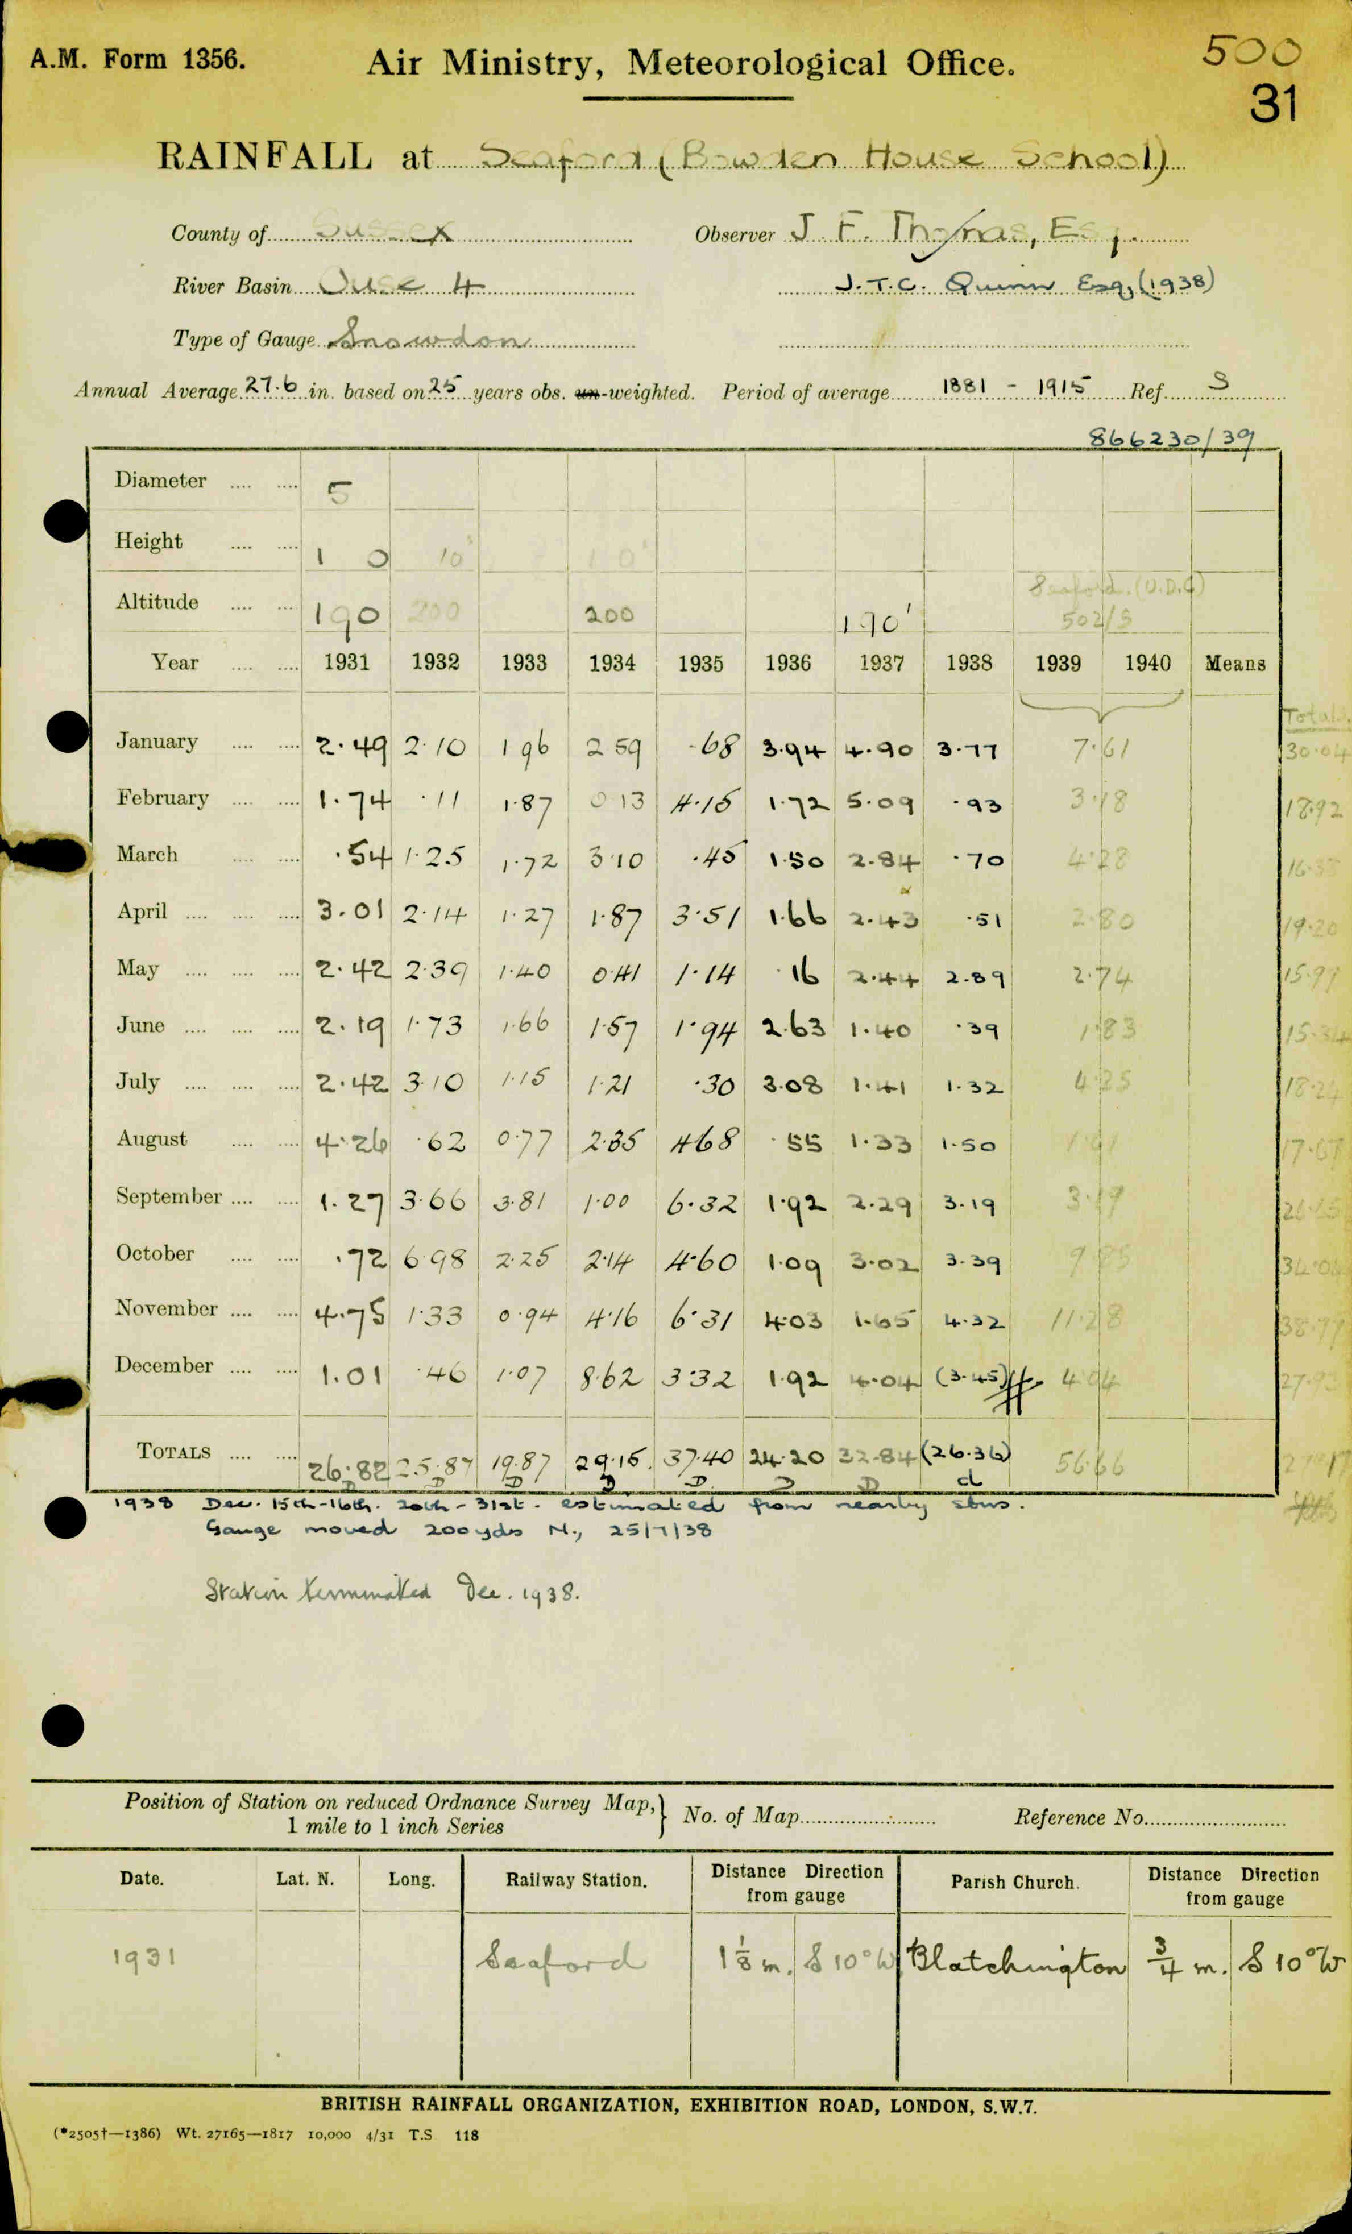 A.M. Form 1356. Air Ministry, Meteorological Office. 500
31
RAINFALL at Seaford (Bowden House School)
County of Sussex Observer J. F. Thomas, Esq.
River Basin Ouse 4 J.T.C. Quinn Esq, (1938)
Type of Gauge Snowdon
Annual Average 27.6 in. based on 25 years obs. un-weighted. Period of average 1881 - 1915 Ref. S
866230/39
Diameter .... .... 5
Height .... .... 1 0 10" 1 0"
Seaford. (U.D.C)
Altitude .... .... 190 200 200 190' 502/3
Year .... .... 1931 1932 1933 1934 1935 1936 1937 1938 1939 1940 Means
Totals.
January .... .... 2.49 2.10 1 96 2 59 .68 3.94 4.90 3.77 7.61 30.04
February .... .... 1.74 .11 1.87 0 13 4.15 1.72 5.09 .93 3.18 18.92
March .... .... .54 1.25 1.72 3.10 .45 1.50 2.84 .70 4.28 16.38
April .... .... .... 3.01 2.14 1.27 1.87 3.51 1.66 2.43 .51 2.80 19.20
May .... .... .... 2.42 2.39 1.40 0.41 1.14 .16 2.44 2.89 2.74 15.99
June .... .... .... 2.19 1.73 1.66 1.57 1.94 2.63 1.40 .39 1.83 15.34
July .... .... .... 2.42 3.10 1.15 1.21 .30 3.08 1.41 1.32 4.25 18.24
August .... .... 4.26 .62 0.77 2.35 4.68 .55 1.33 1.50 1.61 17.67
September .... .... 1.27 3.66 3.81 1.00 6.32 1.92 2.29 3.19 3.19 26.65
October .... .... .72 6.98 2.25 2.14 4.60 1.09 3.02 3.39 9.85 34.04
November .... .... 4.75 1.33 0.94 4.16 6.31 4.03 1.65 4.32 11.28 38.77
December .... .... 1.01 .46 1.07 8.62 3.32 1.92 4.04 (3.45) 4.04 27.93
TOTALS .... .... 26.82 25.87 19.87 29.15 37.40 24.20 32.84 (26.36) 56.66
D D D D D D D d
1938 Dec. 15th-16th. 20th - 31st. estimated from nearby stns.
Gauge moved 200yds N., 25/7/38
Station terminated Dec. 1938.
Position of Station on reduced Ordnance Survey Map, 1 mile to 1 inch Series } No. of Map Reference No.
Date. Lat. N. Long. Railway Station. Distance Direction from gauge Parish Church. Distance Direction from gauge
1931 Seaford 1 1/8 m. S 10° W Blatchington 3/4 m. S 10° W
BRITISH RAINFALL ORGANIZATION, EXHIBITION ROAD, LONDON, S.W.7.
(*2505†—1386) Wt. 27165—1817 10,000 4/31 T.S 118